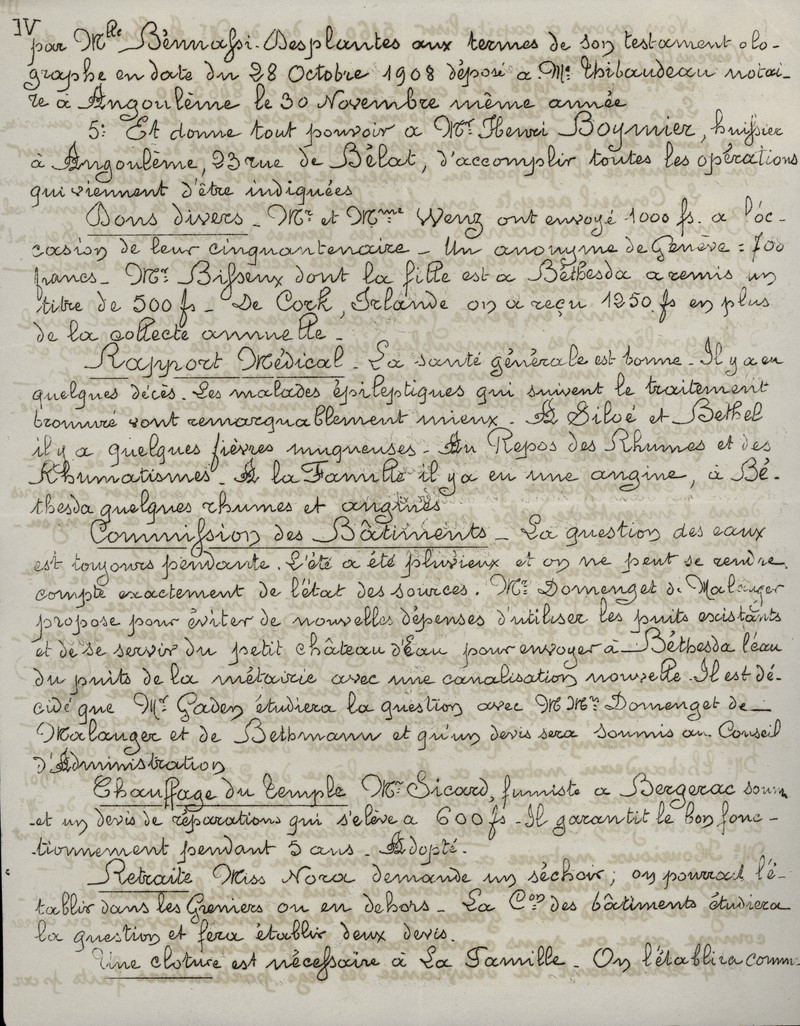 IV
par Mlle Bennassi-Desplantes aux termes de son testament olo-
graphe en date du 28 Octobre 1908 déposé à Me Thibaudeau notai-
re à Angoulême le 30 Novembre même année
5: Et donne tout pouvoir à Mr Henri Boymier, huissier
à Angoulême, 23 rue de Bélat, d'accomplir toutes les opérations
qui viennent d'être indiquées
Dons divers _ Mr et Mme Weng ont envoyé 1000 fs. à l'oc-
casion de leur cinquantenaire _ Un anonyme de Genève : 700
francs _ Mr Bisseux dont la fille est à Béthesda a remis un
titre de 500 fs _ De Cork, Irlande on a reçu 1250 fs en plus
de la collecte annuelle _
Rapport Médical _ La santé générale est bonne _ Il y a eu
quelques décès. Les malades épileptiques qui suivent le traitement
bromuré vont remarquablement mieux. A Siloé et Béthel
il y a quelques fièvres muqueuses _ Au Repos des Rhumes et des
Rhumatismes _ A la Famille il y a eu une angine, à Bé-
thesda quelques rhumes et angines
Commission des Bâtiments _ La question des eaux
est toujours pendante. L'été a été pluvieux et on ne peut se rendre
compte exactement de l'état des sources. Mr Domenget de Malauger
propose pour éviter de nouvelles dépenses d'utiliser les puits existants
et de se servir du petit château d'Eau pour envoyer à Béthesda l'eau
du puits de la métairie avec une canalisation nouvelle. Il est dé-
cidé que Mr Gaden étudiera la question avec MMrs Domenget de _
Malauger et de Bethmann et qu'un devis sera soumis au Conseil
d'Administration
Chauffage du temple Mr Sicard, fumiste à Bergerac soum
-et un devis de réparations qui s'élève à 600 fs _ Il garantit le bon fonc -
tionnement pendant 5 ans _ Adopté.
Retraite Miss Nora demande un séchoir ; on pourrait l'é-
tablir dans les Greniers ou en dehors _ La Con des bâtiments étudiera
la question et fera établir deux devis.
Une cloture est nécessaire à La Famille _ On l'établira comm-